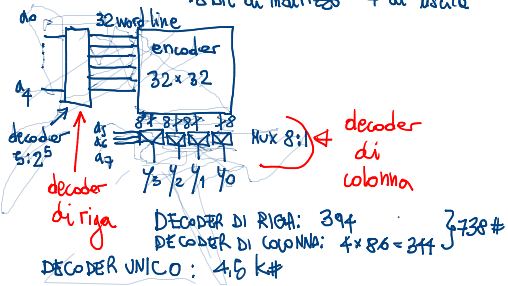 di uscita
a0
32 word line
encoder
32×32
a4
decoder
5:2⁵
8 8 8 8
a5
a6
a7
MUX 8:1
decoder
di
colonna
y3 y2 y1 y0
decoder
di riga
DECODER DI RIGA: 394
DECODER DI COLONNA: 4×86=344
}738#
DECODER UNICO: 4,5 k#